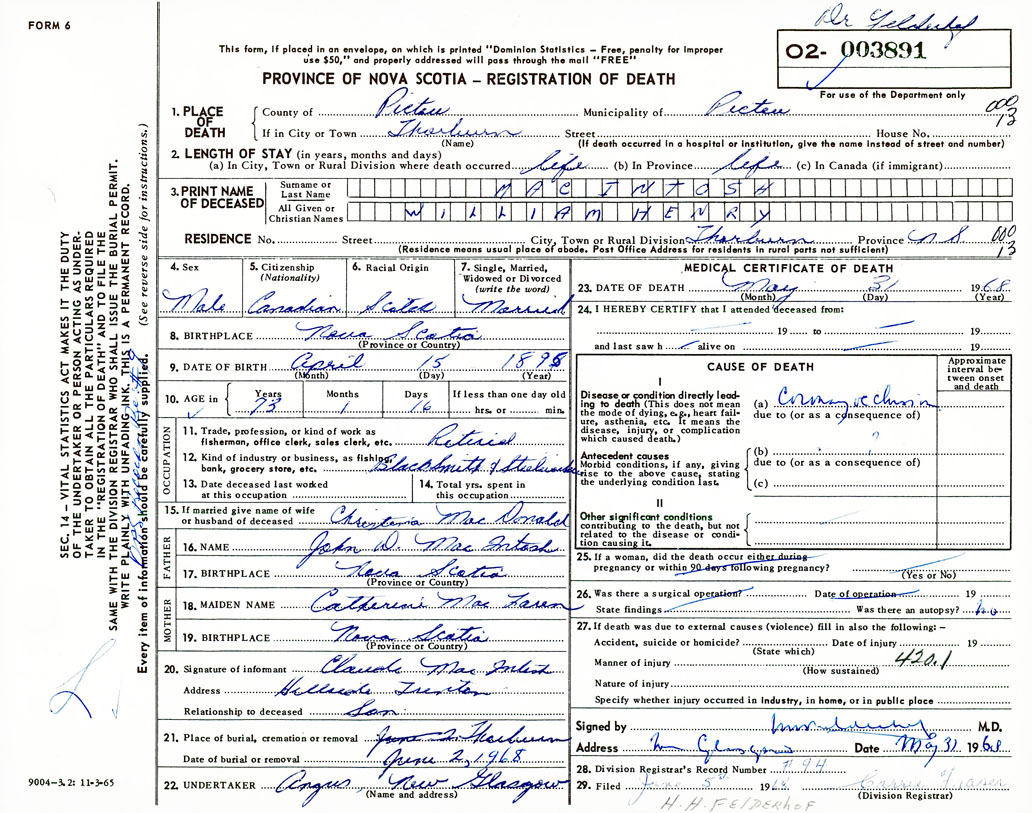 FORM 6
Dr Felderhof
This form, if placed in an envelope, on which is printed "Dominion Statistics – Free, penalty for improper
use $50," and properly addressed will pass through the mail "FREE"
O2- 003891
PROVINCE OF NOVA SCOTIA – REGISTRATION OF DEATH
For use of the Department only
1. PLACE OF DEATH
County of Pictou Municipality of Pictou
000
13
If in City or Town Thorburn Street House No.
(Name) (If death occurred in a hospital or institution, give the name instead of street and number)
2. LENGTH OF STAY (in years, months and days)
(a) In City, Town or Rural Division where death occurred life (b) In Province life (c) In Canada (if immigrant)
3. PRINT NAME OF DECEASED
Surname or Last Name MAC INTOSH
All Given or Christian Names WILLIAM HENRY
RESIDENCE No. Street City, Town or Rural Division Thorburn Province N S
000
13
(Residence means usual place of abode. Post Office Address for residents in rural parts not sufficient)
4. Sex Male
5. Citizenship (Nationality) Canadian
6. Racial Origin Scotch
7. Single, Married, Widowed or Divorced (write the word) Married
8. BIRTHPLACE Nova Scotia
(Province or Country)
9. DATE OF BIRTH April 15 1895
(Month) (Day) (Year)
10. AGE in Years 73 Months 1 Days 16 If less than one day old
hrs. or min.
OCCUPATION
11. Trade, profession, or kind of work as
fisherman, office clerk, sales clerk, etc. Retired
12. Kind of industry or business, as fishing,
bank, grocery store, etc. Blacksmith & Steelworker
13. Date deceased last worked
at this occupation
14. Total yrs. spent in
this occupation
15. If married give name of wife
or husband of deceased Christina Mac Donald
FATHER
16. NAME John D. Mac Intosh
17. BIRTHPLACE Nova Scotia
(Province or Country)
MOTHER
18. MAIDEN NAME Catherine Mac Laren
19. BIRTHPLACE Nova Scotia
(Province or Country)
20. Signature of informant Claude Mac Intosh
Address Hillside Trenton
Relationship to deceased Son
21. Place of burial, cremation or removal June 2, Thorburn
Date of burial or removal June 2, 1968
22. UNDERTAKER Angus, New Glasgow
(Name and address)
MEDICAL CERTIFICATE OF DEATH
23. DATE OF DEATH May 31 1968
(Month) (Day) (Year)
24. I HEREBY CERTIFY that I attended deceased from:
19 to 19
and last saw h alive on 19
CAUSE OF DEATH
Approximate interval between onset and death
I
Disease or condition directly leading to death (This does not mean the mode of dying, e.g., heart failure, asthenia, etc. It means the disease, injury, or complication which caused death.)
(a) Coronary occlusion
due to (or as a consequence of)
?
Antecedent causes
Morbid conditions, if any, giving rise to the above cause, stating the underlying condition last.
(b)
due to (or as a consequence of)
(c)
II
Other significant conditions
contributing to the death, but not related to the disease or condition causing it.
25. If a woman, did the death occur either during
pregnancy or within 90 days following pregnancy?
(Yes or No)
26. Was there a surgical operation? Date of operation 19
State findings Was there an autopsy? no
27. If death was due to external causes (violence) fill in also the following: –
Accident, suicide or homicide? Date of injury 19
(State which)
Manner of injury 420.1
(How sustained)
Nature of injury
Specify whether injury occurred in Industry, in home, or in public place
Signed by M.D.
Address N Glasgow Date May 31 1968
28. Division Registrar's Record Number # 94
29. Filed June 5th 1968 Carrie Fraser
(Division Registrar)
H.H. FELDERHOF
SEC. 14 – VITAL STATISTICS ACT MAKES IT THE DUTY
OF THE UNDERTAKER OR PERSON ACTING AS UNDER-
TAKER TO OBTAIN ALL THE PARTICULARS REQUIRED
IN THE "REGISTRATION OF DEATH" AND TO FILE THE
SAME WITH THE DIVISION REGISTRAR WHO SHALL ISSUE THE BURIAL PERMIT.
WRITE PLAINLY WITH UNFADING INK. THIS IS A PERMANENT RECORD.
Every item of information should be carefully supplied. (See reverse side for instructions.)
9004–3.2: 11-3-65